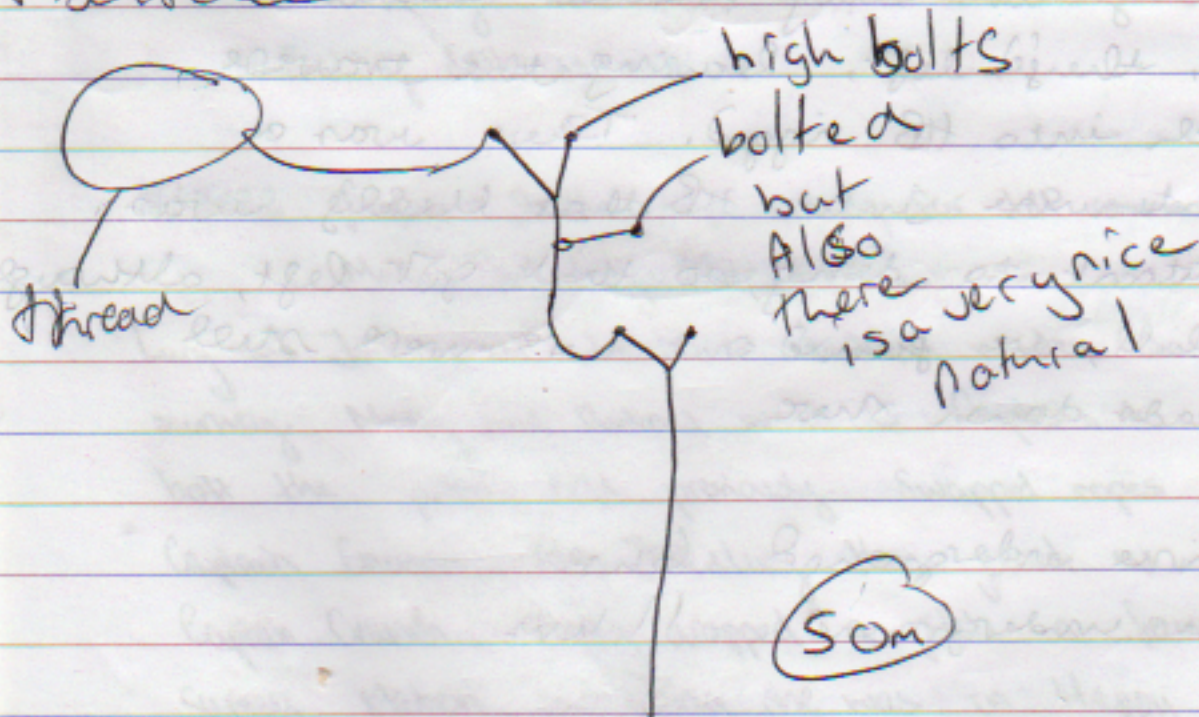 high bolts
bolted
but
Also
there
is a very nice
natural
thread
50m